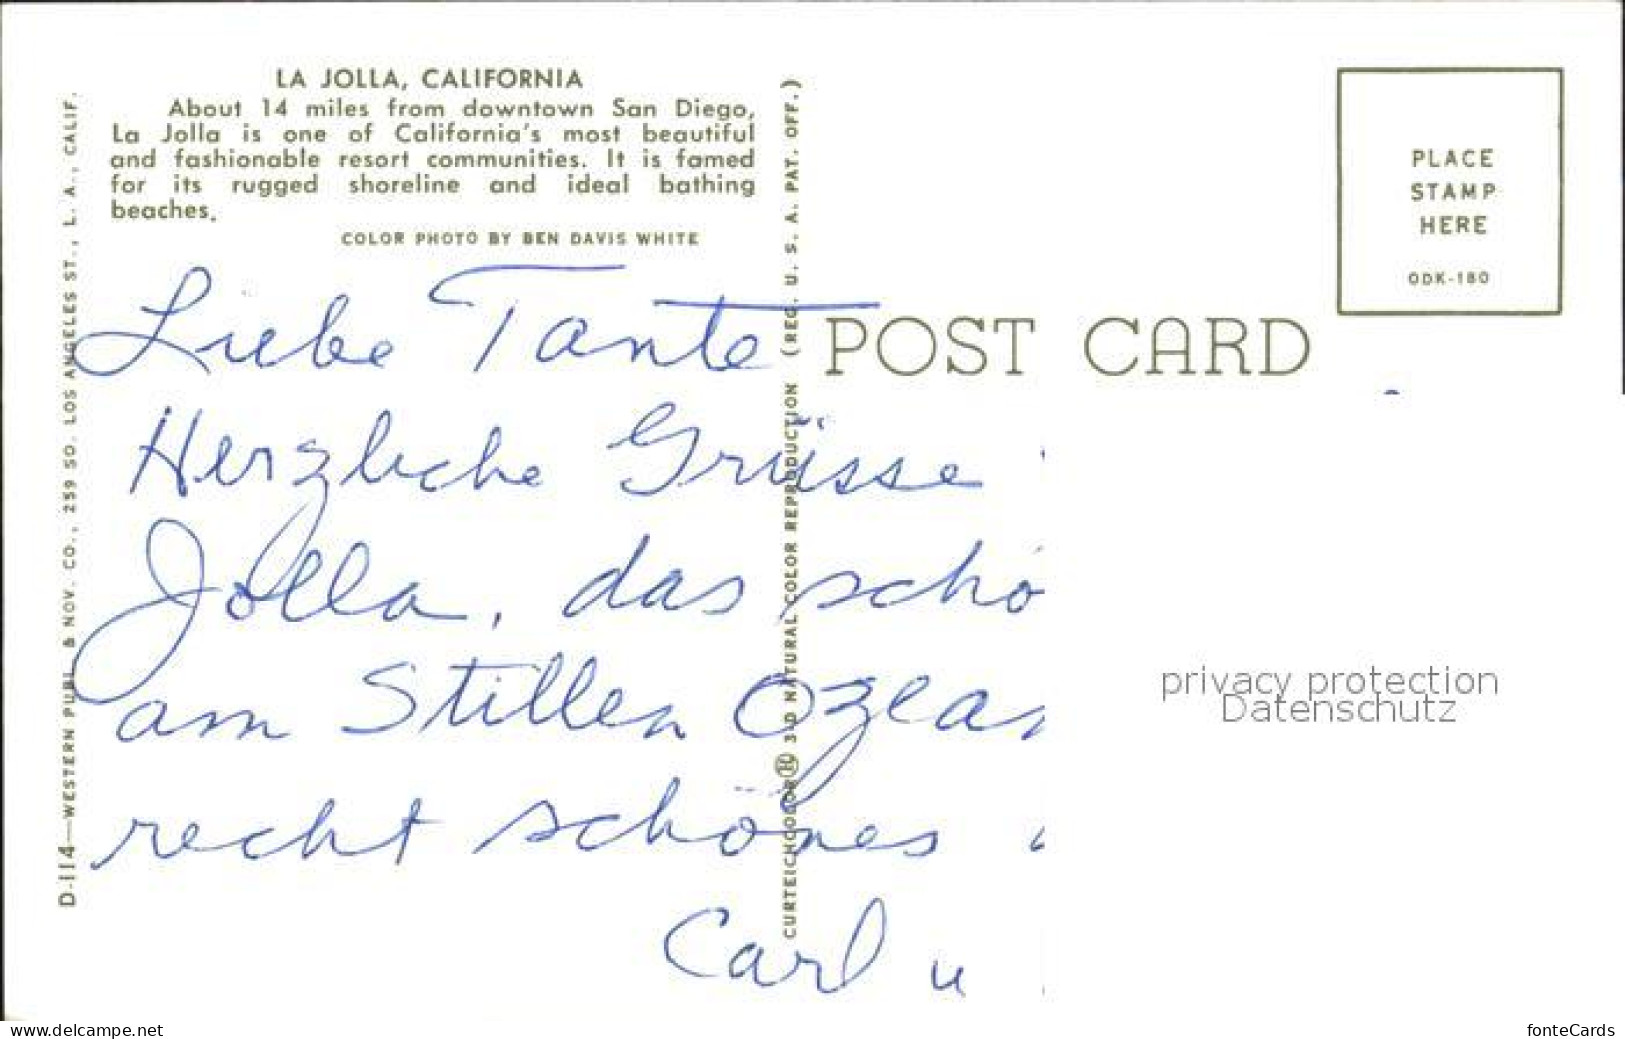 LA JOLLA, CALIFORNIA
About 14 miles from downtown San Diego,
La Jolla is one of California's most beautiful
and fashionable resort communities. It is famed
for its rugged shoreline and ideal bathing
beaches.
COLOR PHOTO BY BEN DAVIS WHITE
D-114—WESTERN PUBL. & NOV. CO., 259 SO. LOS ANGELES ST., L. A., CALIF.
CURTEICHCOLOR 3-D NATURAL COLOR REPRODUCTION (REG. U. S. A. PAT. OFF.)
POST CARD
PLACE
STAMP
HERE
ODK-180
Liebe Tante
Herzliche Grüsse
Jolla, das schö
am Stillen Ozean
recht schönes
Carl u
privacy protection
Datenschutz
www.delcampe.net
fonteCards